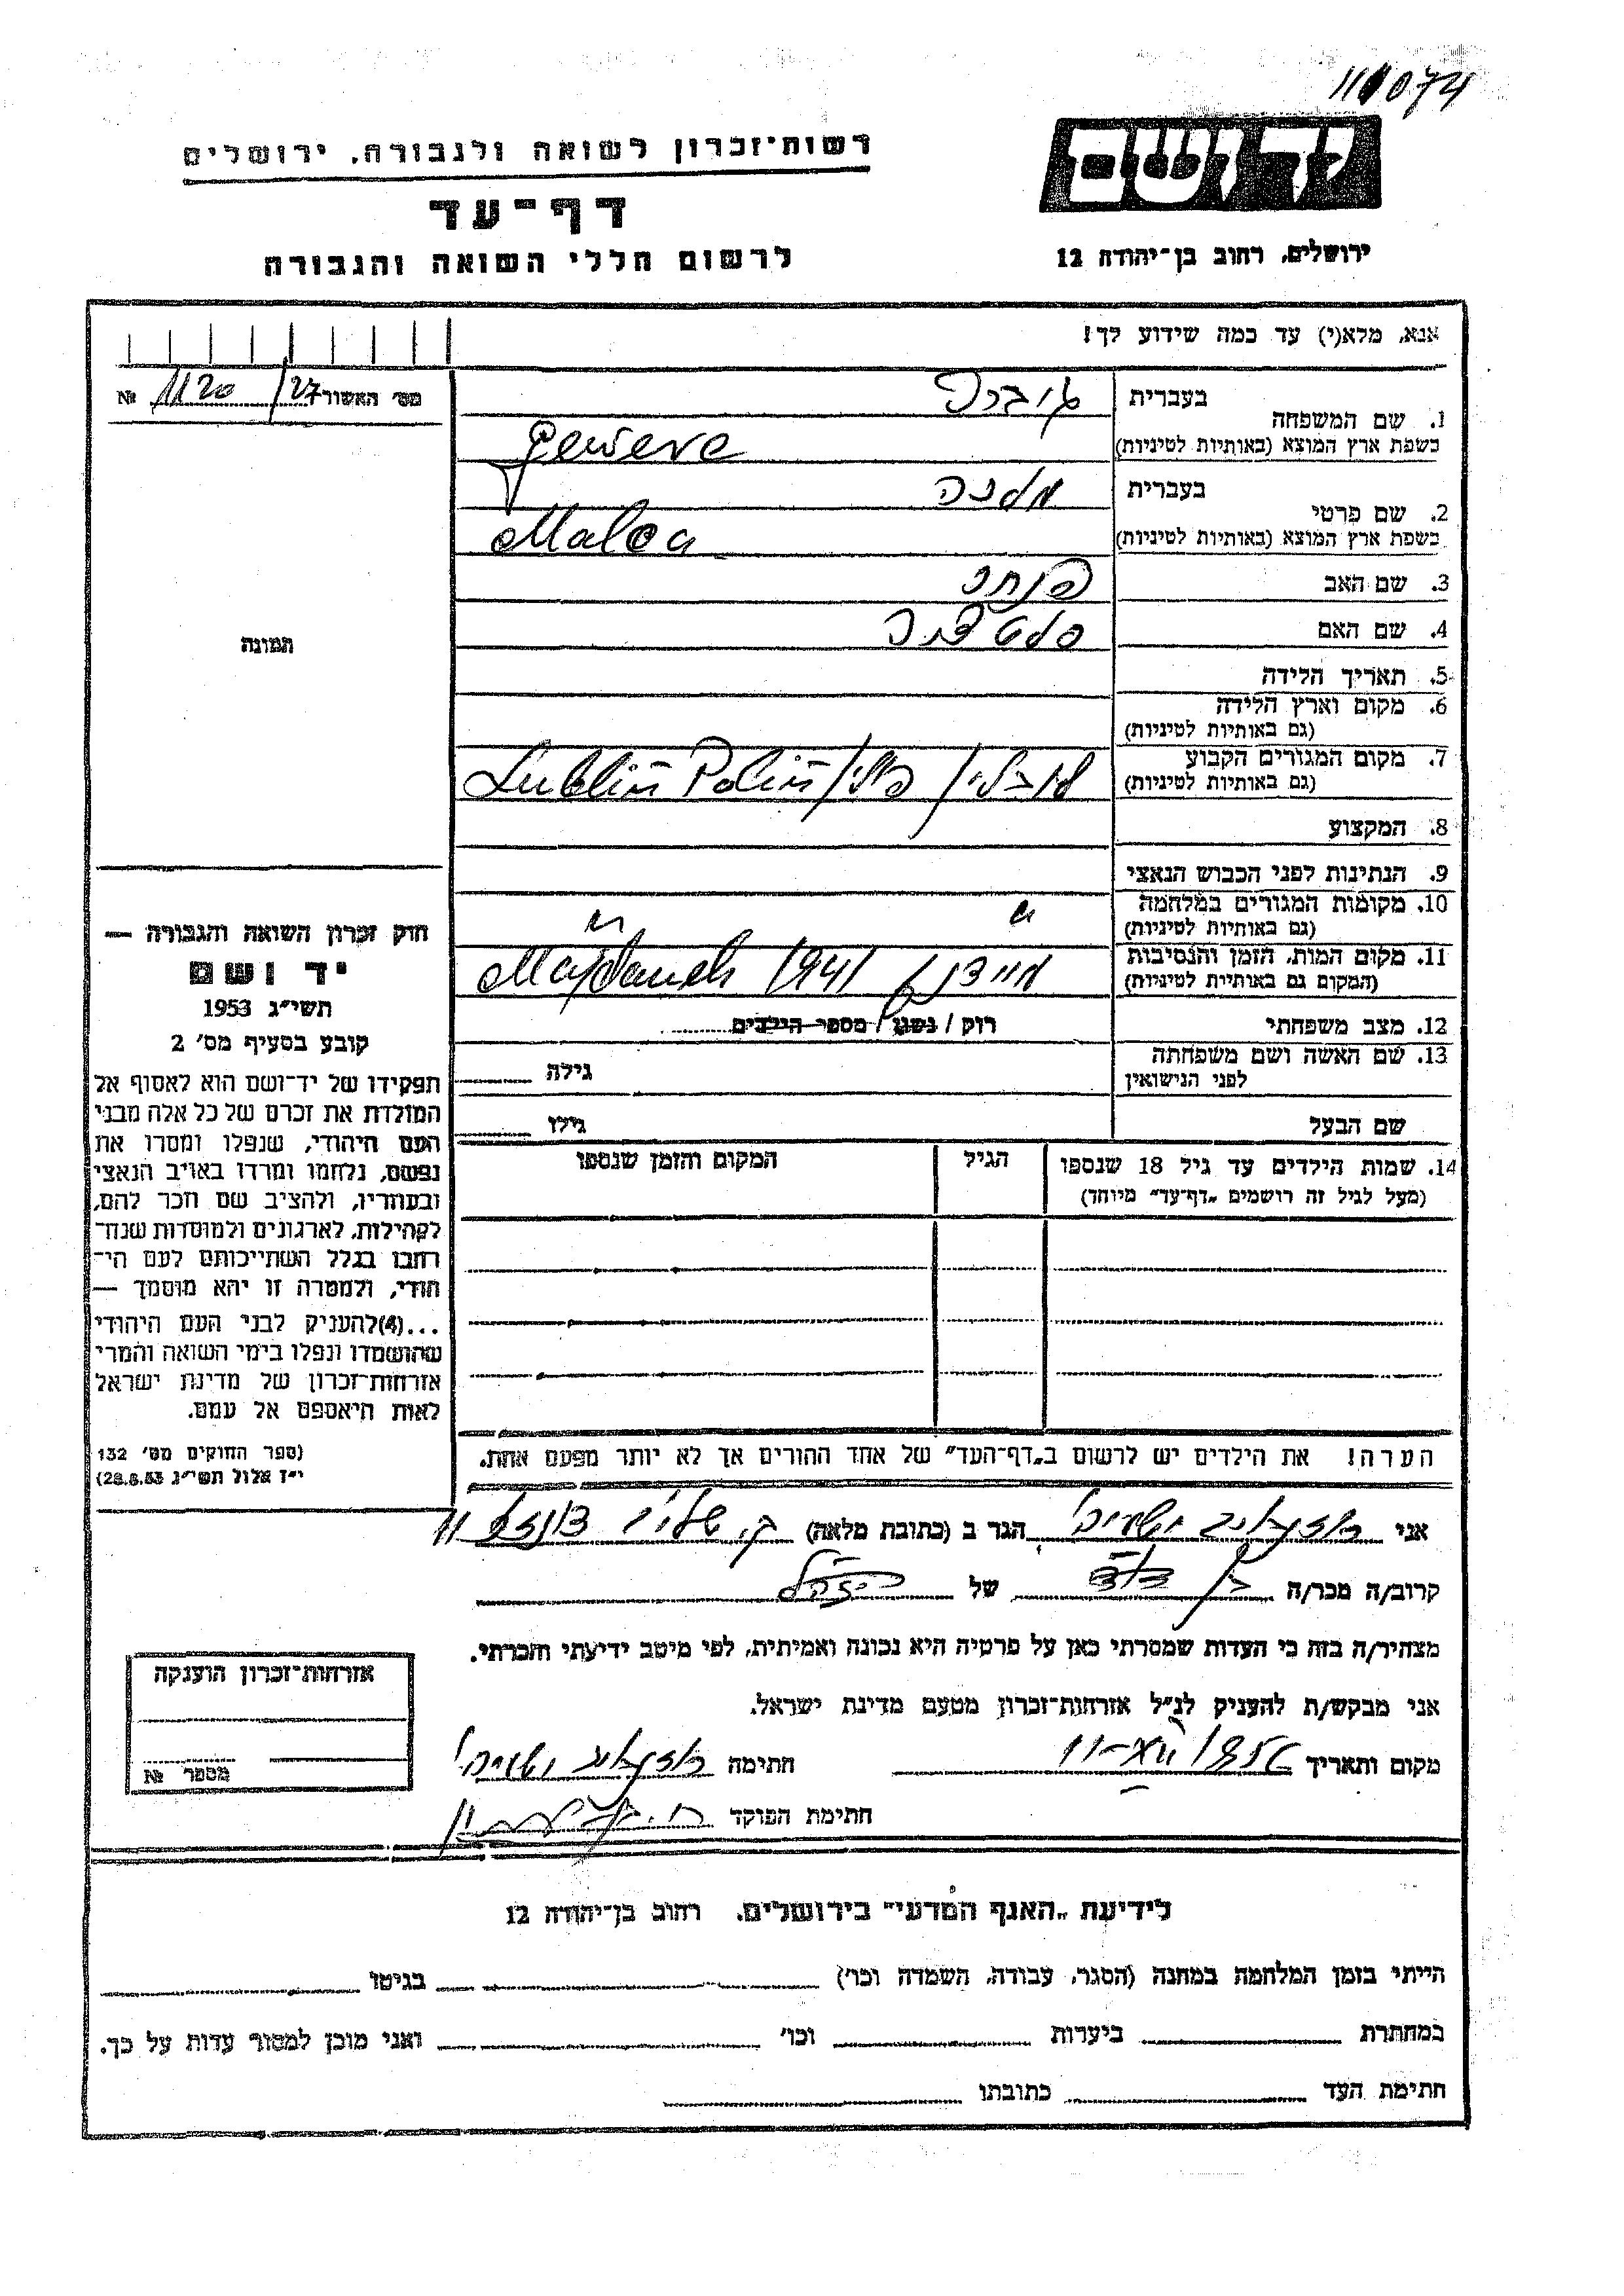 111074
יד ושם
רשות־זכרון לשואה ולגבורה, ירושלים
דף־עד
לרשום חללי השואה והגבורה
ירושלים, רחוב בן־יהודה 12
אנא, מלא(י) עד כמה שידוע לך!
מס׳ האשור 1120/27 №
1. שם המשפחה
בעברית
בשפת ארץ המוצא (באותיות לטיניות) Gewere
2. שם פרטי
בעברית מלכה
בשפת ארץ המוצא (באותיות לטיניות)
3. שם האב
4. שם האם
5. תאריך הלידה
6. מקום וארץ הלידה
(גם באותיות לטיניות)
7. מקום המגורים הקבוע לובלין פולין Lublin Polin
(גם באותיות לטיניות)
8. המקצוע
9. הנתינות לפני הכבוש הנאצי
10. מקומות המגורים במלחמה
(גם באותיות לטיניות)
11. מקום המות, הזמן והנסיבות מיידנק 1941 Majdanek
(המקום גם באותיות לטיניות)
12. מצב משפחתי רוק / נשוי / מספר הילדים
13. שם האשה ושם משפחתה גילה
לפני הנישואין
שם הבעל גילו
14. שמות הילדים עד גיל 18 שנספו הגיל המקום והזמן שנספו
(מעל לגיל זה רושמים „דף־עד״ מיוחד)
הערה! את הילדים יש לרשום ב„דף־העד״ של אחד ההורים אך לא יותר מפעם אחת.
תמונה
חוק זכרון השואה והגבורה —
יד ושם
תשי״ג 1953
קובע בסעיף מס׳ 2
תפקידו של יד־ושם הוא לאסוף אל
המולדת את זכרם של כל אלה מבני
העם היהודי, שנפלו ומסרו את
נפשם, נלחמו ומרדו באויב הנאצי
ובעוזריו, ולהציב שם וזכר להם,
לקהילות, לארגונים ולמוסדות שנח־
רבו בגלל השתייכותם לעם הי־
הודי, ולמטרה זו יהא מוסמך —
...(4)להעניק לבני העם היהודי
שהושמדו ונפלו בימי השואה והמרי
אזרחות־זכרון של מדינת ישראל
לאות היאספם אל עמם.
(ספר החוקים מס׳ 132
י״ז אלול תשי״ג 28.8.53)
אני הגר ב (כתובת מלאה)
קרוב/ה מכר/ה של
מצהיר/ה בזה כי העדות שמסרתי כאן על פרטיה היא נכונה ואמיתית, לפי מיטב ידיעתי והכרתי.
אני מבקש/ת להעניק לנ״ל אזרחות־זכרון מטעם מדינת ישראל.
מקום ותאריך חתימה
חתימת הפוקד
אזרחות־זכרון הוענקה
מספר №
לידיעת „האגף המדעי״ בירושלים, רחוב בן־יהודה 12
הייתי בזמן המלחמה במחנה (הסגר, עבודה, השמדה וכו׳) בגיטו
במחתרת ביערות וכו׳ ואני מוכן למסור עדות על כך.
חתימת העד כתובתו